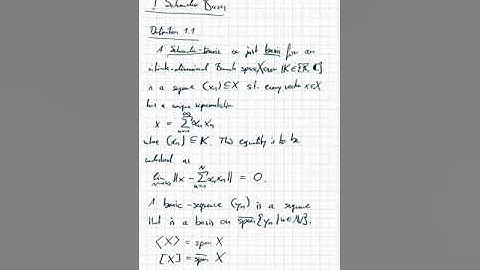 1 Schauder Bases
Definition 1.1
A Schauder-basis or just basis for an
infinite-dimensional Banach space X over K∈{R, C}
is a sequence (xn) ⊆ X s.t. every vector x∈X
has a unique representation
x = ∑_{n=1}^{∞} αn xn
where (αn) ⊆ K. This equality is to be
understood as
lim_{N→∞} ‖x - ∑_{n=1}^{N} αn xn‖ = 0.
A basic-sequence (yn) is a sequence
that is a basis on \overline{span}{yn | n∈N}.
⟨X⟩ = span X
[X] = \overline{span} X